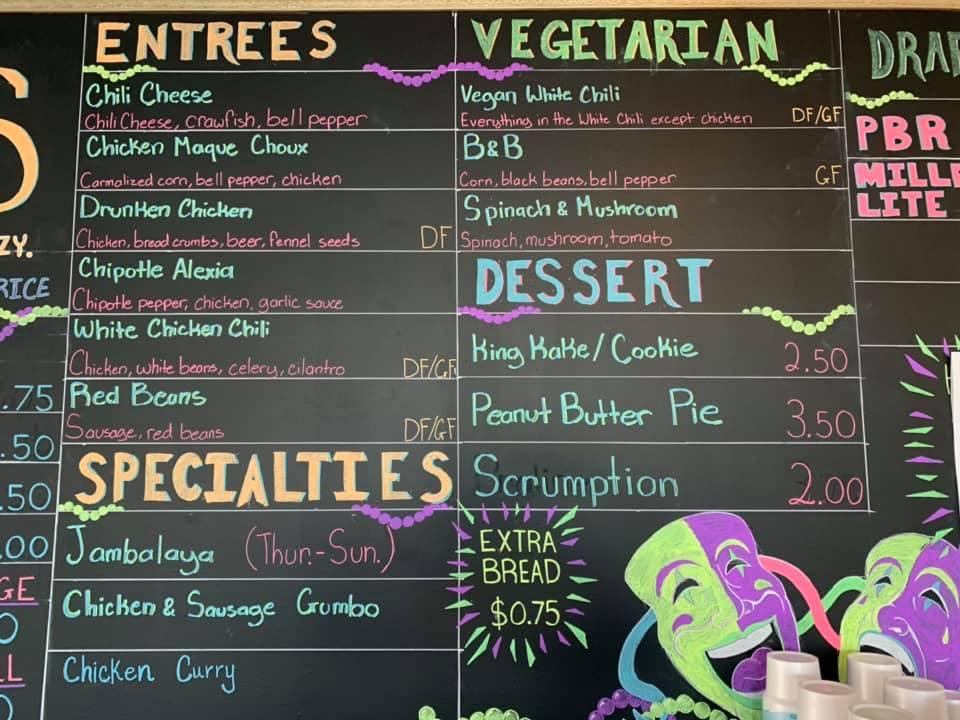 S
ZY.
RICE
.75
.50
.50
.00
GE
0
LL
0
ENTREES
Chili Cheese
Chili Cheese, crawfish, bell pepper
Chicken Maque Choux
Carmalized corn, bell pepper, chicken
Drunken Chicken
Chicken, bread crumbs, beer, fennel seeds DF
Chipotle Alexia
Chipotle pepper, chicken, garlic sauce
White Chicken Chili
Chicken, white beans, celery, cilantro DF/GF
Red Beans
Sausage, red beans DF/GF
SPECIALTIES
Jambalaya (Thur.-Sun.)
Chicken & Sausage Gumbo
Chicken Curry
VEGETARIAN
Vegan White Chili
Everything in the White Chili except chicken DF/GF
B&B
Corn, black beans, bell pepper GF
Spinach & Mushroom
Spinach, mushroom, tomato
DESSERT
King Kake/Cookie 2.50
Peanut Butter Pie 3.50
Scrumption 2.00
EXTRA
BREAD
$0.75
DRAF
PBR
MILLE
LITE